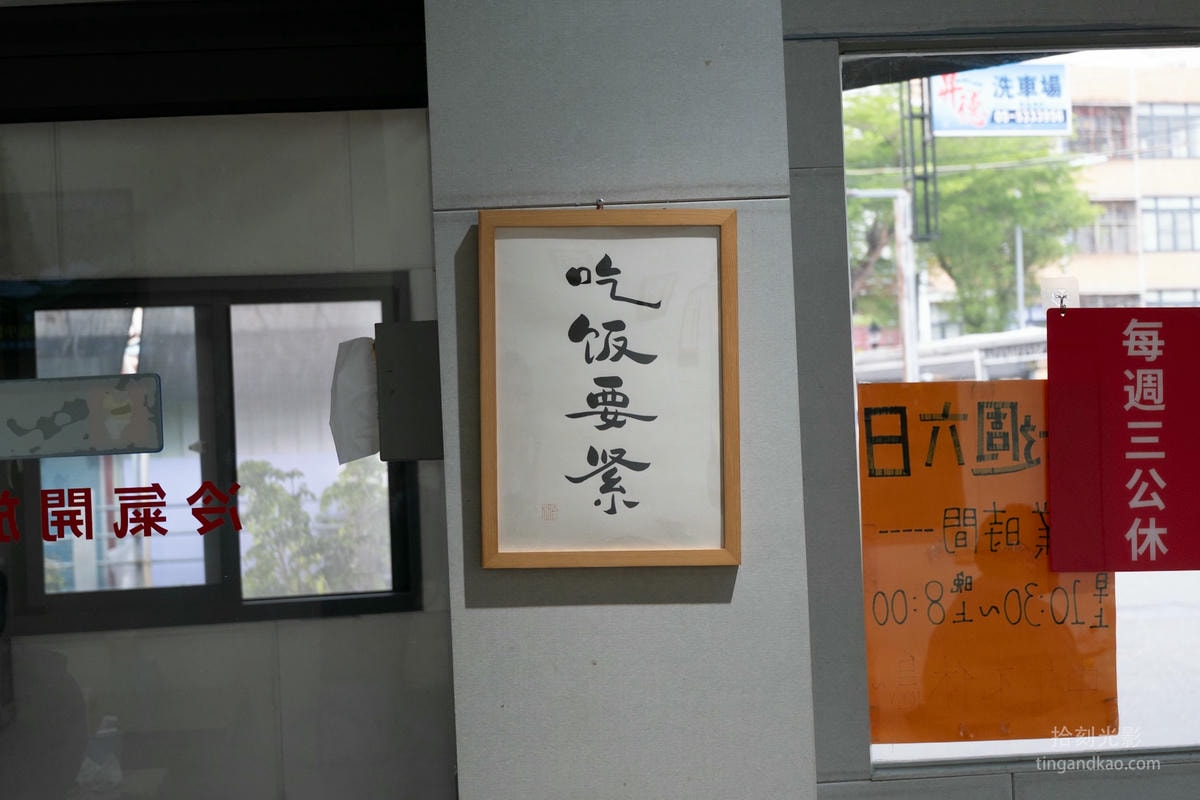 吃饭要紧
冷氣開放
洗車場
每週三公休
週六日
業時間----
早上10:30~晚上8:00
拾刻光影
tingandkao.com